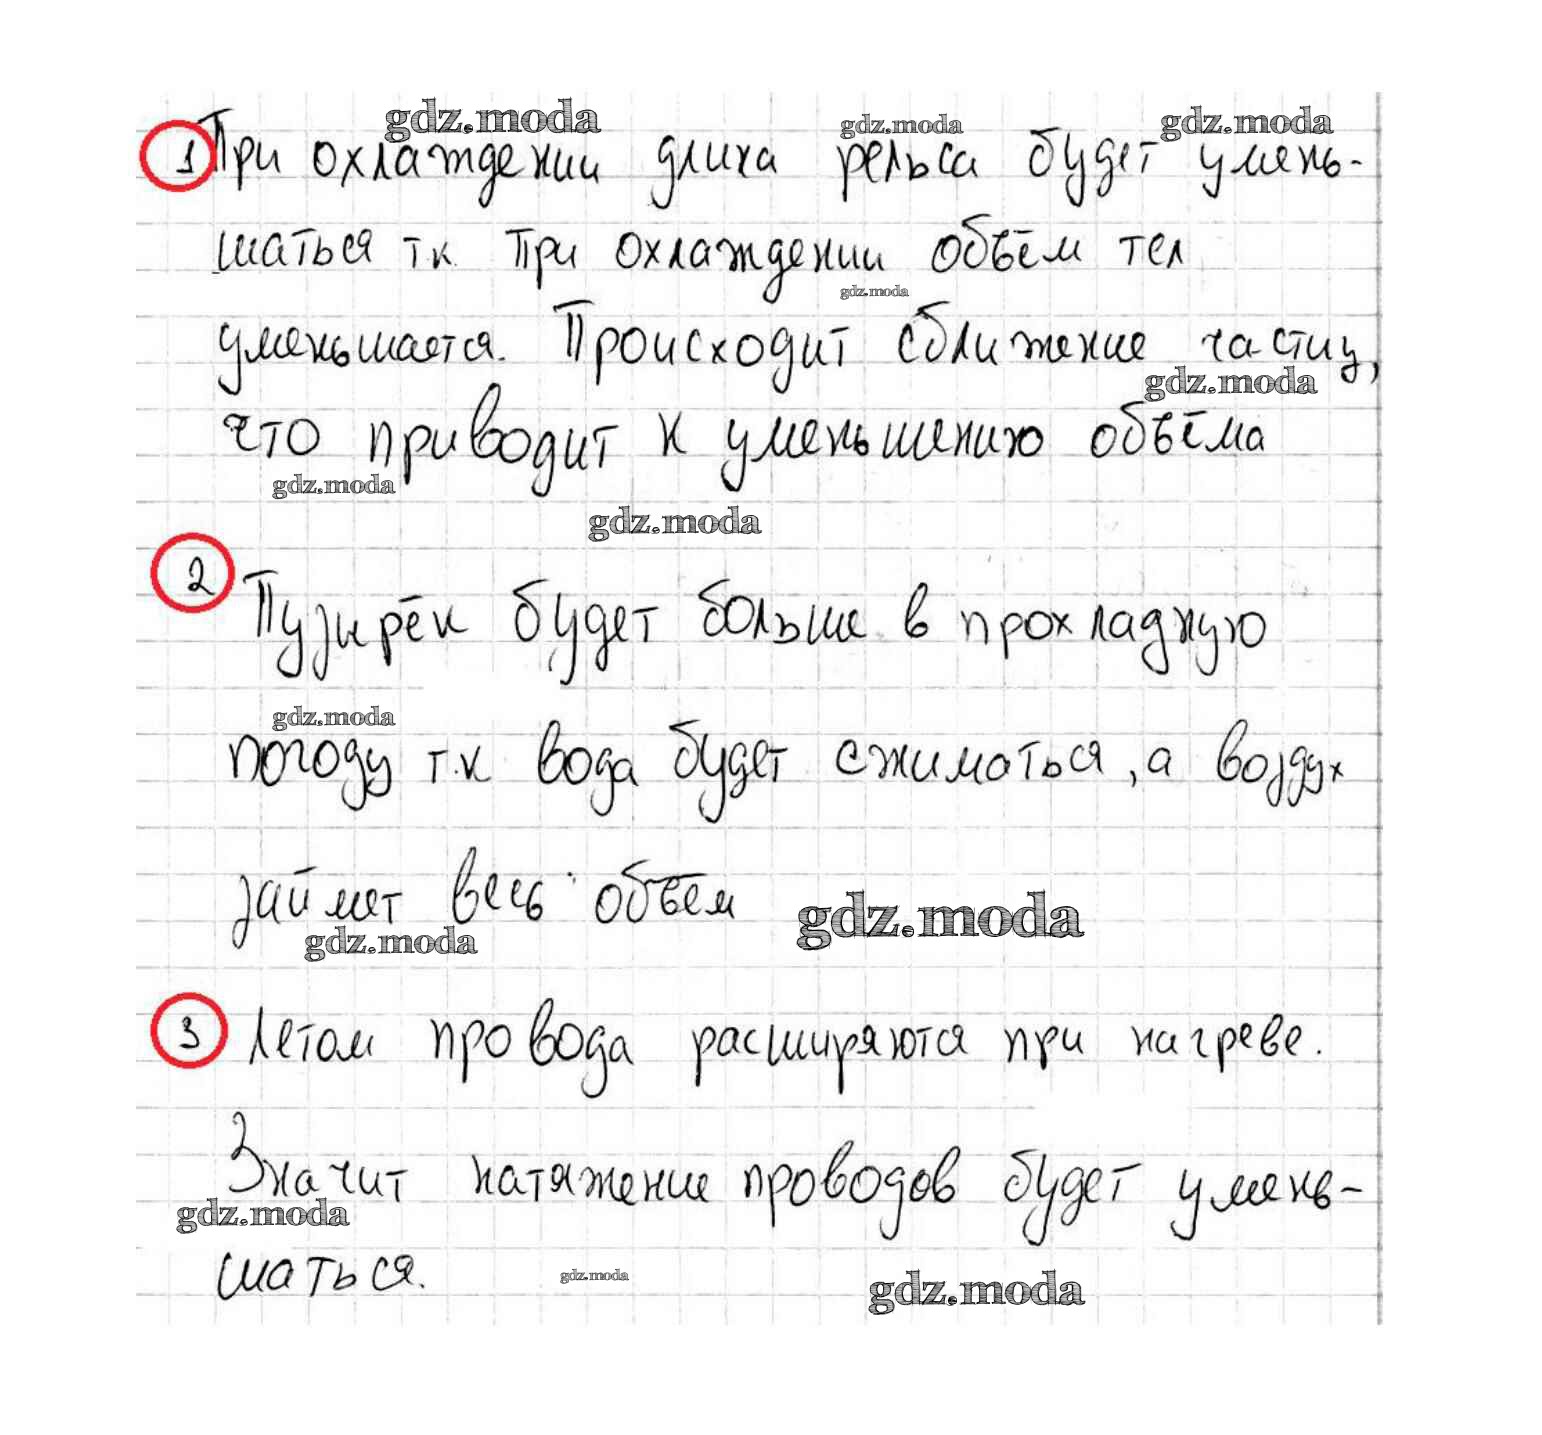 gdz.moda gdz.moda gdz.moda
1 При охлаждении длина рельса будет умень-
шаться тк при охлаждении объём тел
gdz.moda
уменьшается. Происходит сближение частиц,
gdz.moda
что приводит к уменьшению объёма
gdz.moda
gdz.moda
2 Пузырёк будет больше в прохладную
gdz.moda
погоду т.к вода будет сжиматься, а воздух
займет весь объём
gdz.moda
gdz.moda
3 Летом провода расширяются при нагреве.
Значит натяжение проводов будет умень-
gdz.moda
шаться.
gdz.moda gdz.moda